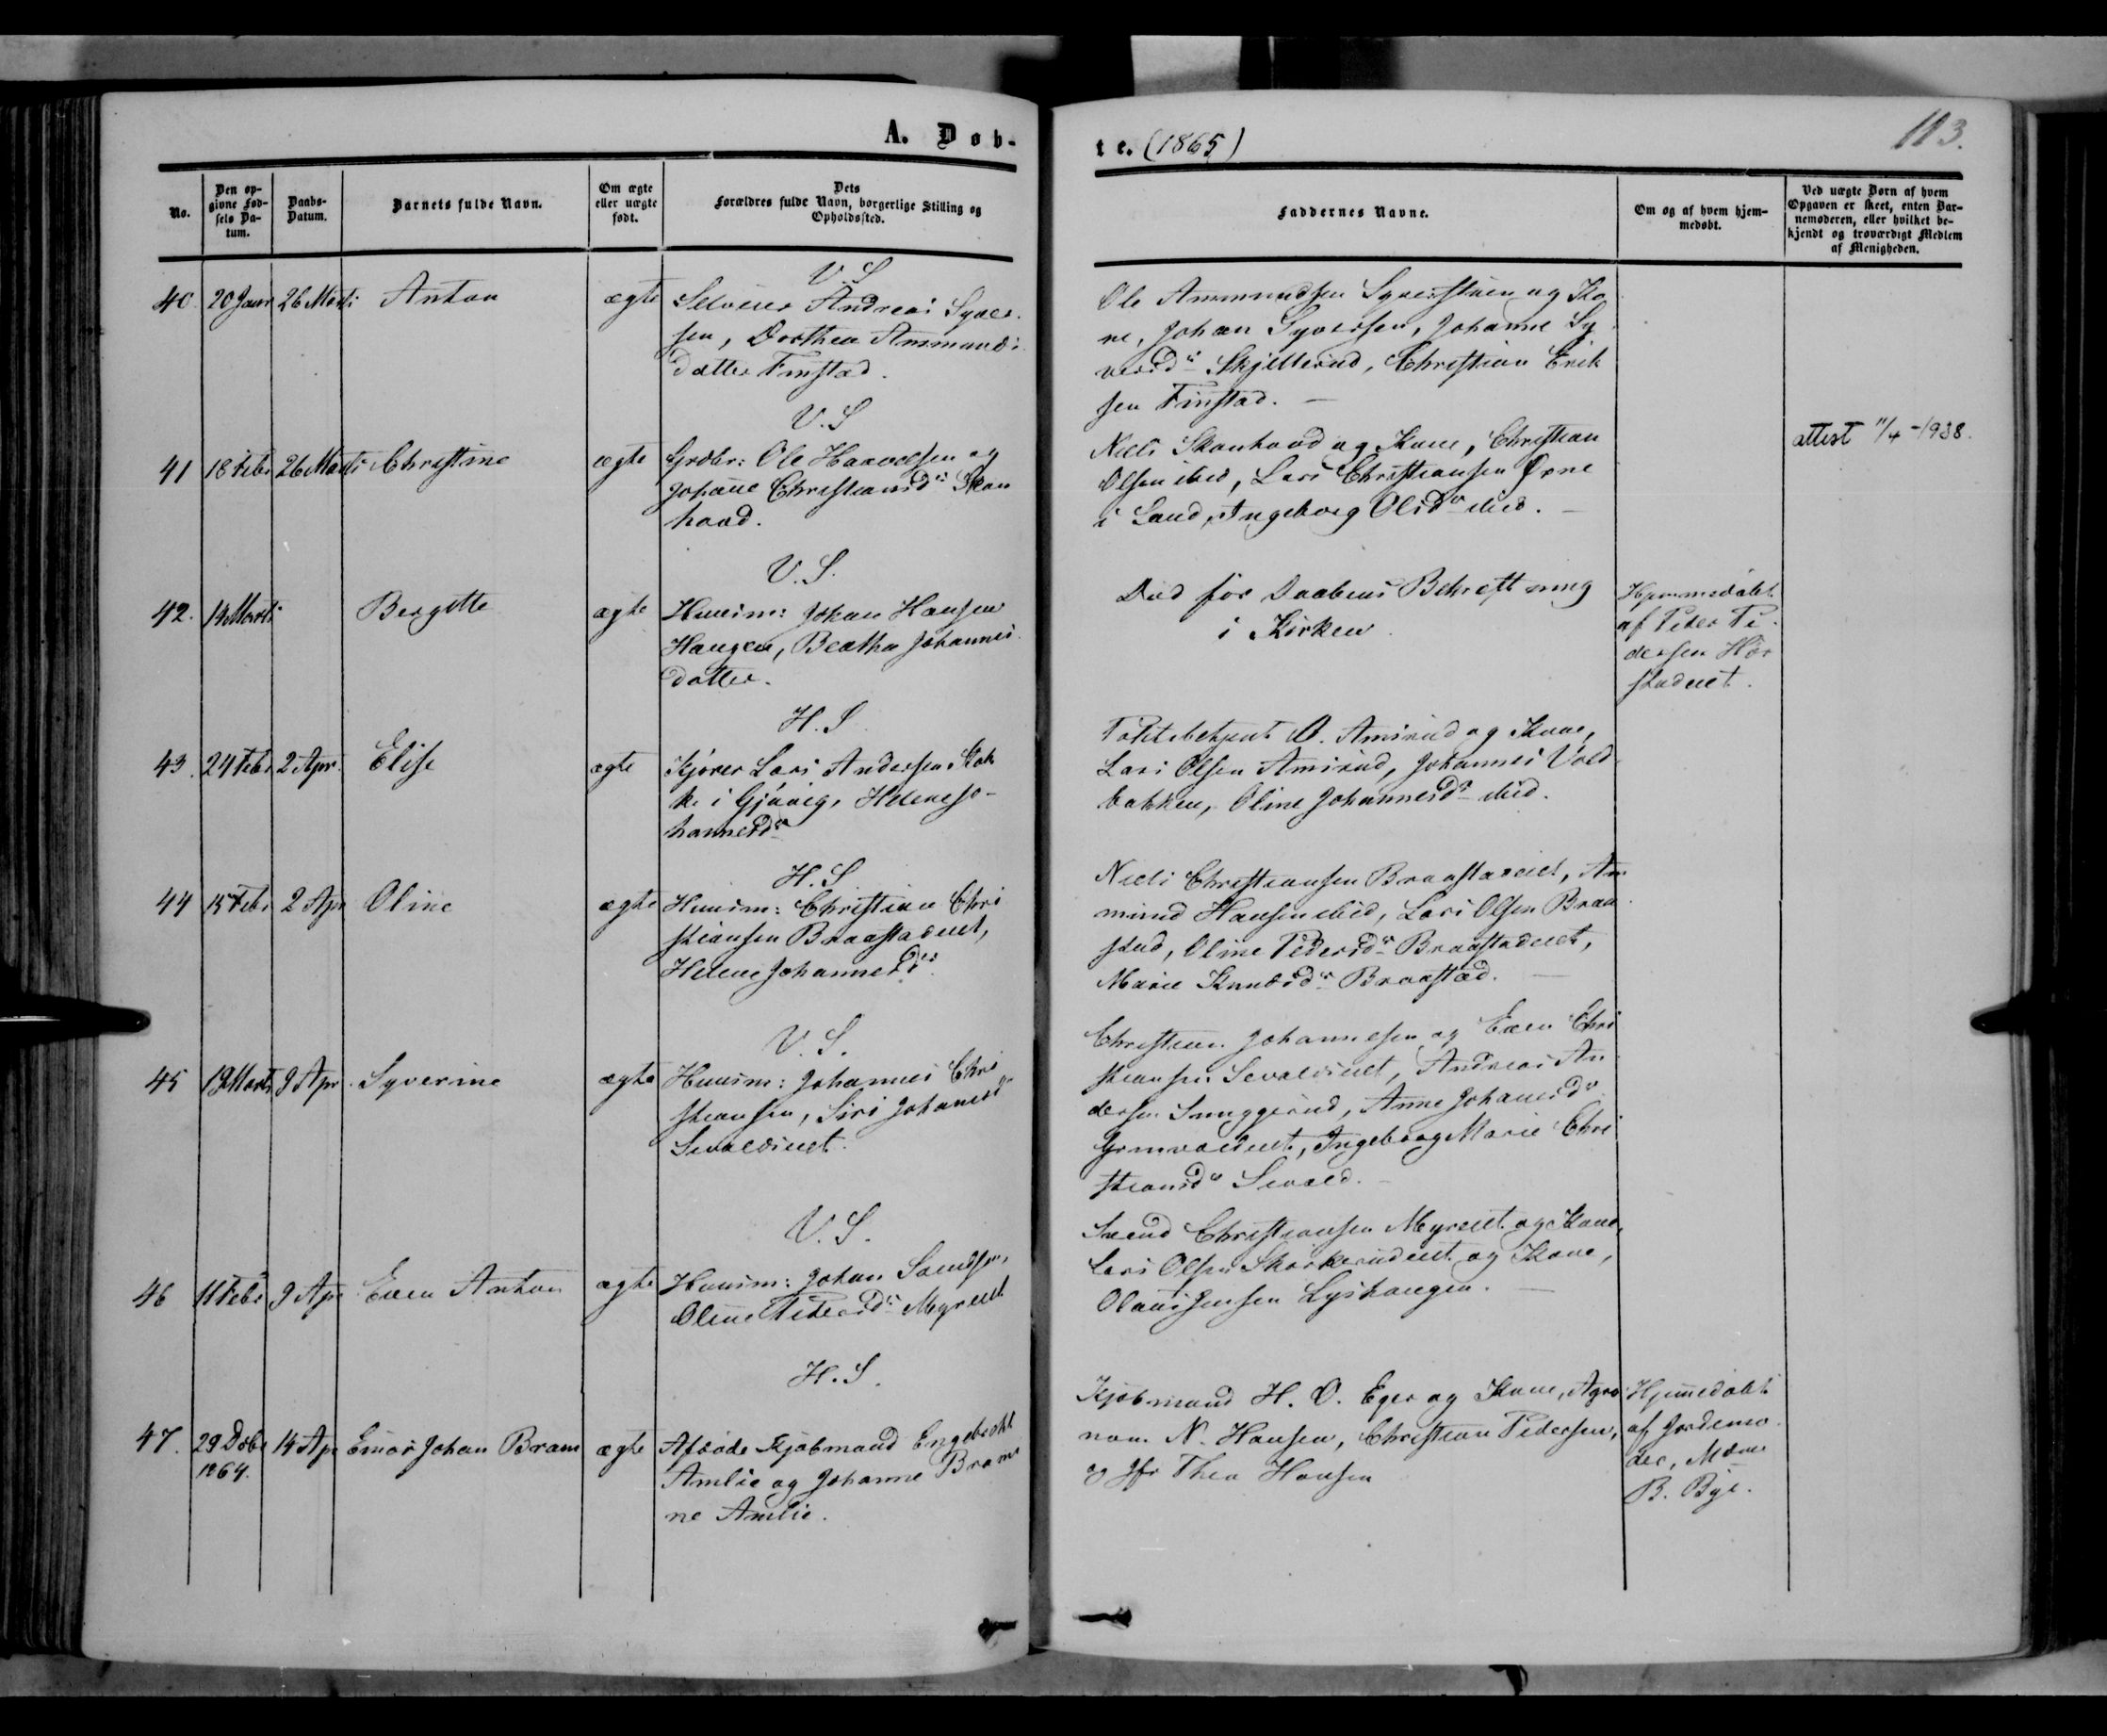 A. Døb-
te. (1865)
113.
No.
Den op-
givne Fød-
sels Da-
tum.
Daabs-
Datum.
Barnets fulde Navn.
Om ægte
eller uægte
født.
Dets
Forældres fulde Navn, borgerlige Stilling og
Opholdssted.
Faddernes Navne.
Om og af hvem hjem-
medøbt.
Ved uægte Børn af hvem
Opgaven er skeet, enten Bar-
nemoderen, eller hvilket be-
kjendt og troværdigt Medlem
af Menigheden.
V. S
40. 20 Janr 26 Marts Anton ægte Selveier Andreas Syver-
sen, Dorthea Ammunds
datter Finstad.
Ole Ammundsen Syverstuen og Ko
ne, Johan Syversen, Johanne Sy
versdr Skjellerud, Christian Erik
sen Finstad. —
V. S
41 18 Febr 26 Marts Christine ægte Grdbr: Ole Haavelsen og
Johanne Christiansdr Skon
hovd.
Niels Skonhovd og Kone, Christian
Olsen ibid, Lars Christiansen Øvne
i Land, Ingeborg Olsdr ibid. —
attest 11/4 - 1938.
V. S.
42. 14 Marts Bergitte ægte Huusm: Johan Hansen
Haugen, Beathe Johannes
datter.
Død før Daabens Bekræftning
i Kirken.
Hjemmedøbt
af Peder Pe
dersen Hør
stadeiet.
H. S
43. 24 Febr 2 Apr. Elise ægte Kjører Lars Andersen Kok
ke i Gjøvig, Helene Jo-
hannesdr
Politibetjent O. Amsrud og Kone,
Lars Olsen Amsrud, Johannes Vold
bakken, Oline Johannesdr ibid.
H. S.
44 15 Febr 2 Apr Oline ægte Huusm: Christian Chri
stiansen Braastadeiet,
Helene Johannesdr
Niels Christiansen Braastadeiet, Am
mund Hansen ibid, Lars Olsen Braa
stad, Oline Pedersdr Braastadeiet,
Marie Knudsdr Braastad. —
V. S.
45 19 Marts 9 Apr. Syverine ægte Huusm: Johannes Chri
stiansen, Siri Johanesdr
Sevaldseiet.
Christian Johannesen og Even Chri
stiansen Sevaldseiet, Andreas An
dersen Snuggerud, Anne Johanesdr
Grimvoldeiet, Ingeborg Marie Chri
stiansdr Sevald. —
V. S.
46 11 Febr 9 Apr Even Anton ægte Huusm: Johan Svendsen,
Oline Pedersdr Myreiet
Svend Christiansen Myreiet og Kone,
Lars Olsen Skikerudeiet og Kone,
Olaus Jensen Lyshaugen. —
H. S.
47. 29 Dcbr
1864. 14 Apr Einar Johan Bram ægte Afdøde Kjøbmand Engebreht
Amlie og Johanne Bram
ne Amlie.
Kjøbmand H. O. Eger og Kone, Agro
nom N. Hansen, Christian Pedersen,
og Jfr Thea Hansen
Hjemedøbt
af Jordemo
der, Mdme
B. Bye.